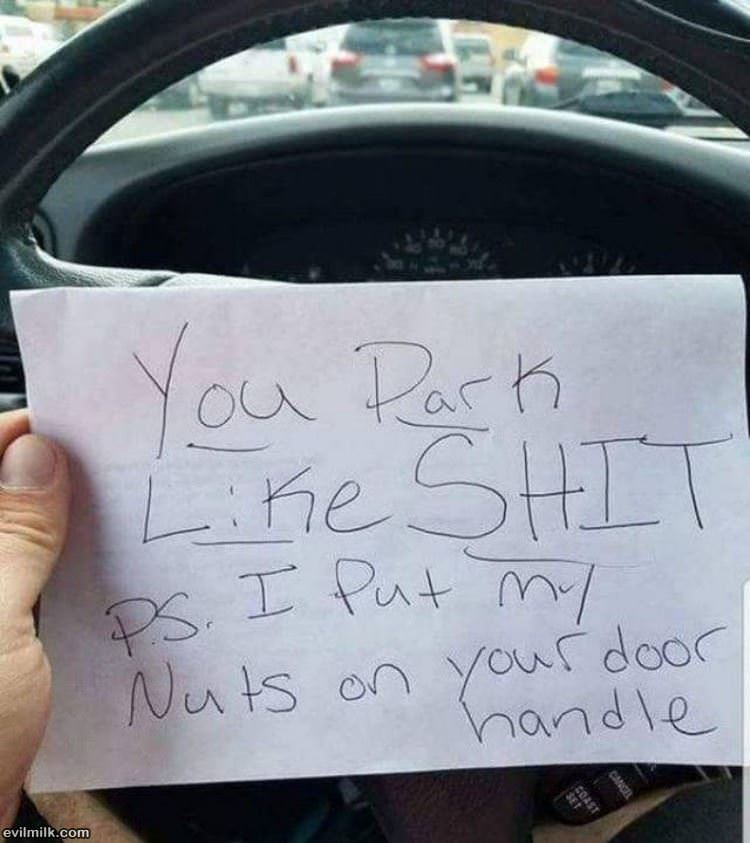 You Park
Like SHIT
P.S. I Put my
Nuts on your door
handle
COAST
SET
CANCEL
evilmilk.com